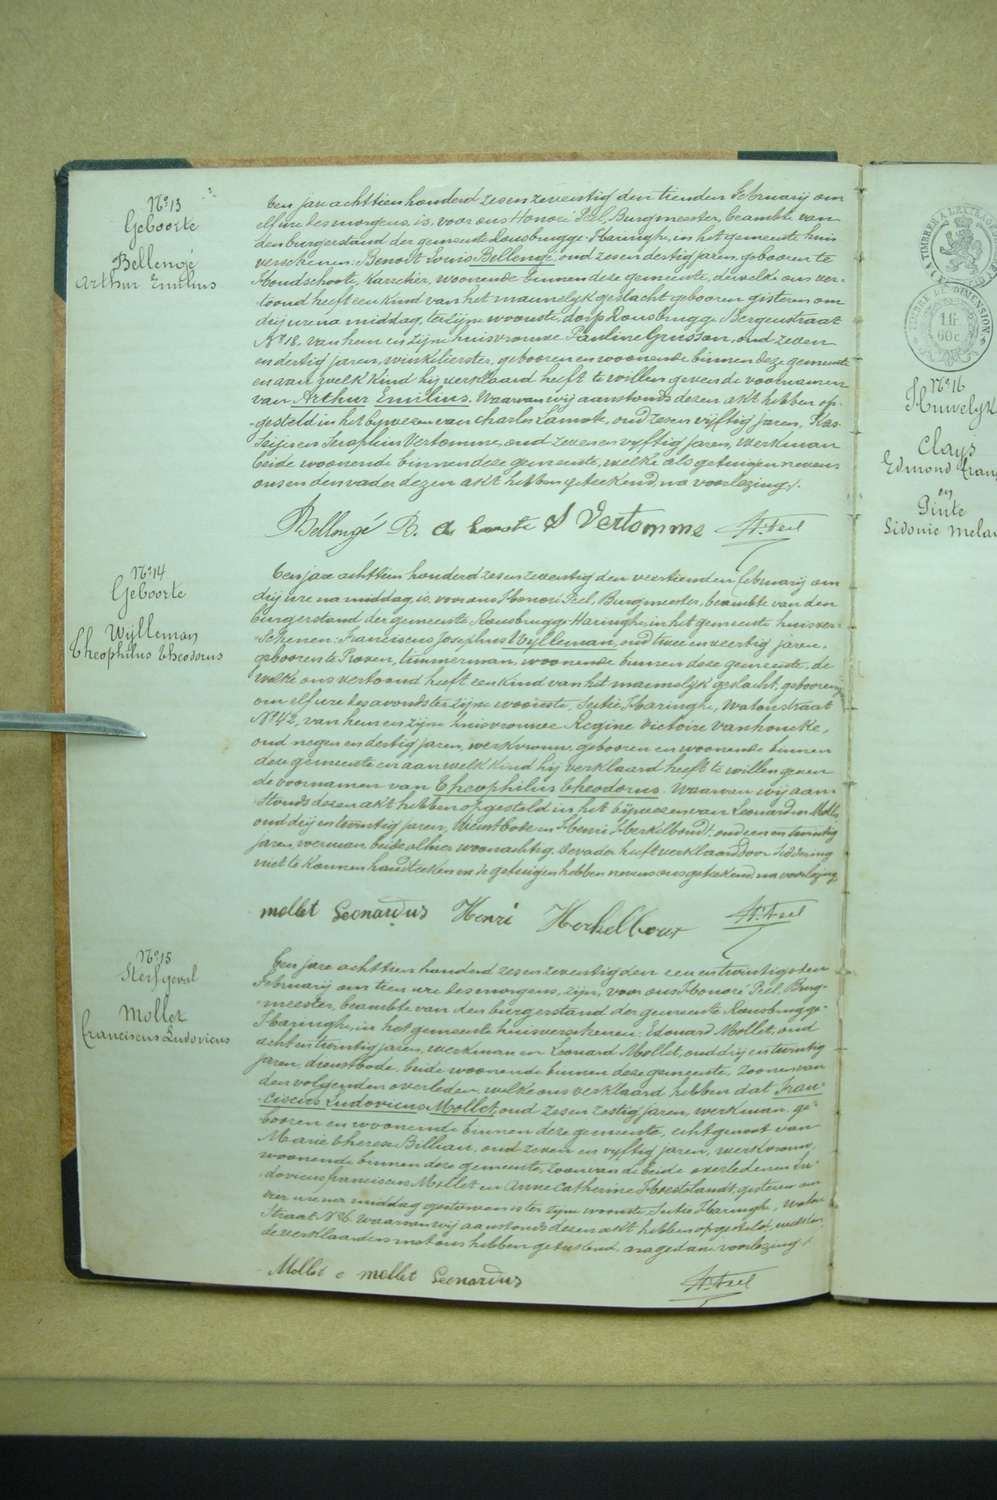 No 13
Geboorte
Bellengé
Arthur Emilius
Een jare achttien honderd zes en zeventig den tienden february om
elf ure des morgens, is, voor ons Honoré Peel, Burgmeester, beambte van
den burgerstand der gemeente Rousbrugge-Haringhe, in het gemeente huis
verschenen: Benoit Louis Bellengé, oud zes en dertig jaren, geboren te
Hondschoote, woonende binnen deze gemeente, dewelke ons ver-
toond heeft een kind van het mannelyk geslacht geboren gisteren om
drij ure na middag, ter zijne wooste, dorp Rousbrugge Bergenstraat
No 18, van hem en zijne huisvrouwe Pauline Grusson, oud zeven
en dertig jaren, winkelierster, geboren en woonende binnen deze gemeente
en aan welk kind hij verklaard heeft te willen geven de voornamen
van Arthur Emilius. Waarvan wij aanstonds dezen akt hebben op-
gesteld in het bijwezen van Charles oud zes en vijftig jaren,
en Seraphin Vertomme, oud zeven en vyftig jaren, werkman
beide woonende binnen deze gemeente, welke als getuigen nevens
ons en den vader dezen akt hebben geteekend, na voorlezing.
Bellengé B. S Vertomme H. Peel
No 14
Geboorte
Wylleman
Theophilus Theodorus
Een jare achttien honderd zes en zeventig den veertienden february om
drij ure na middag, is, voor ons Honoré Peel, Burgmeester, beambte van den
burgerstand der gemeente Rousbrugge-Haringhe, in het gemeente huis ver-
schenen: Franciscus Josephus Wylleman, oud twee en veertig jaren,
geboren te Proven, timmerman, woonende binnen deze gemeente, de
welke ons vertoond heeft een kind van het mannelyk geslacht, geboren
om elf ure des avonds ter zijne wooste, Sectie Haringhe, Watoustraat
No 42, van hem en zijne huisvrouwe Regine Victoire Vanhoucke,
oud negen en dertig jaren, werkvrouw, geboren en woonende binnen
deze gemeente en aan welk kind hij verklaard heeft te willen geven
de voornamen van Theophilus Theodorus. Waarvan wij aan-
stonds dezen akt hebben opgesteld in het bijwezen van Leonardus Mollet,
oud drij en twintig jaren, dienstbode en Henri Herkelbout, oud een en twintig
jaren, voerman, beide alhier woonachtig. De vader heeft verklaard door
niet te kunnen handteeken en de getuigen hebben nevens ons geteekend na voorlezing
mollet Leonardus Henri Herkelbout H. Peel
No 15
Sterfgeval
Mollet
Franciscus Ludovicus
Een jare achttien honderd zes en zeventig den een en twintigsten
February om tien ure des morgens, zijn, voor ons Honoré Peel, Burg-
meester, beambte van den burgerstand der gemeente Rousbrugge-
Haringhe, in het gemeente huis verschenen: Edouard Mollet, oud
acht en twintig jaren, werkman en Leonard Mollet, oud drij en twintig
jaren, dienstbode, beide woonende binnen deze gemeente, zoonen van
den volgenden overleden, welke ons verklaard hebben dat Fran-
ciscus Ludovicus Mollet, oud zes en zestig jaren, werkman, ge-
boren en woonende binnen deze gemeente, echtgenoot van
Marie Therese Billiau, oud zeven en vijftig jaren, werkvrouw,
woonende binnen deze gemeente, zoon van de beide overledenen Lu-
dovicus franciscus Mollet en Anne Catherine gisteren om
vier ure na middag gestorven is ter zijne wooste, Sectie Haringhe, Watou-
straat No 6. Waarvan wij aanstonds dezen akt hebben opgesteld, welken
de verklaarders met ons hebben geteekend, na gedane voorlezing.
Mollet e mollet Leonardus H. Peel
TIMBRE DE DIMENSION
60c
No 16
Huwelyk
Clays
Edmond
en
Pinte
Sidonie